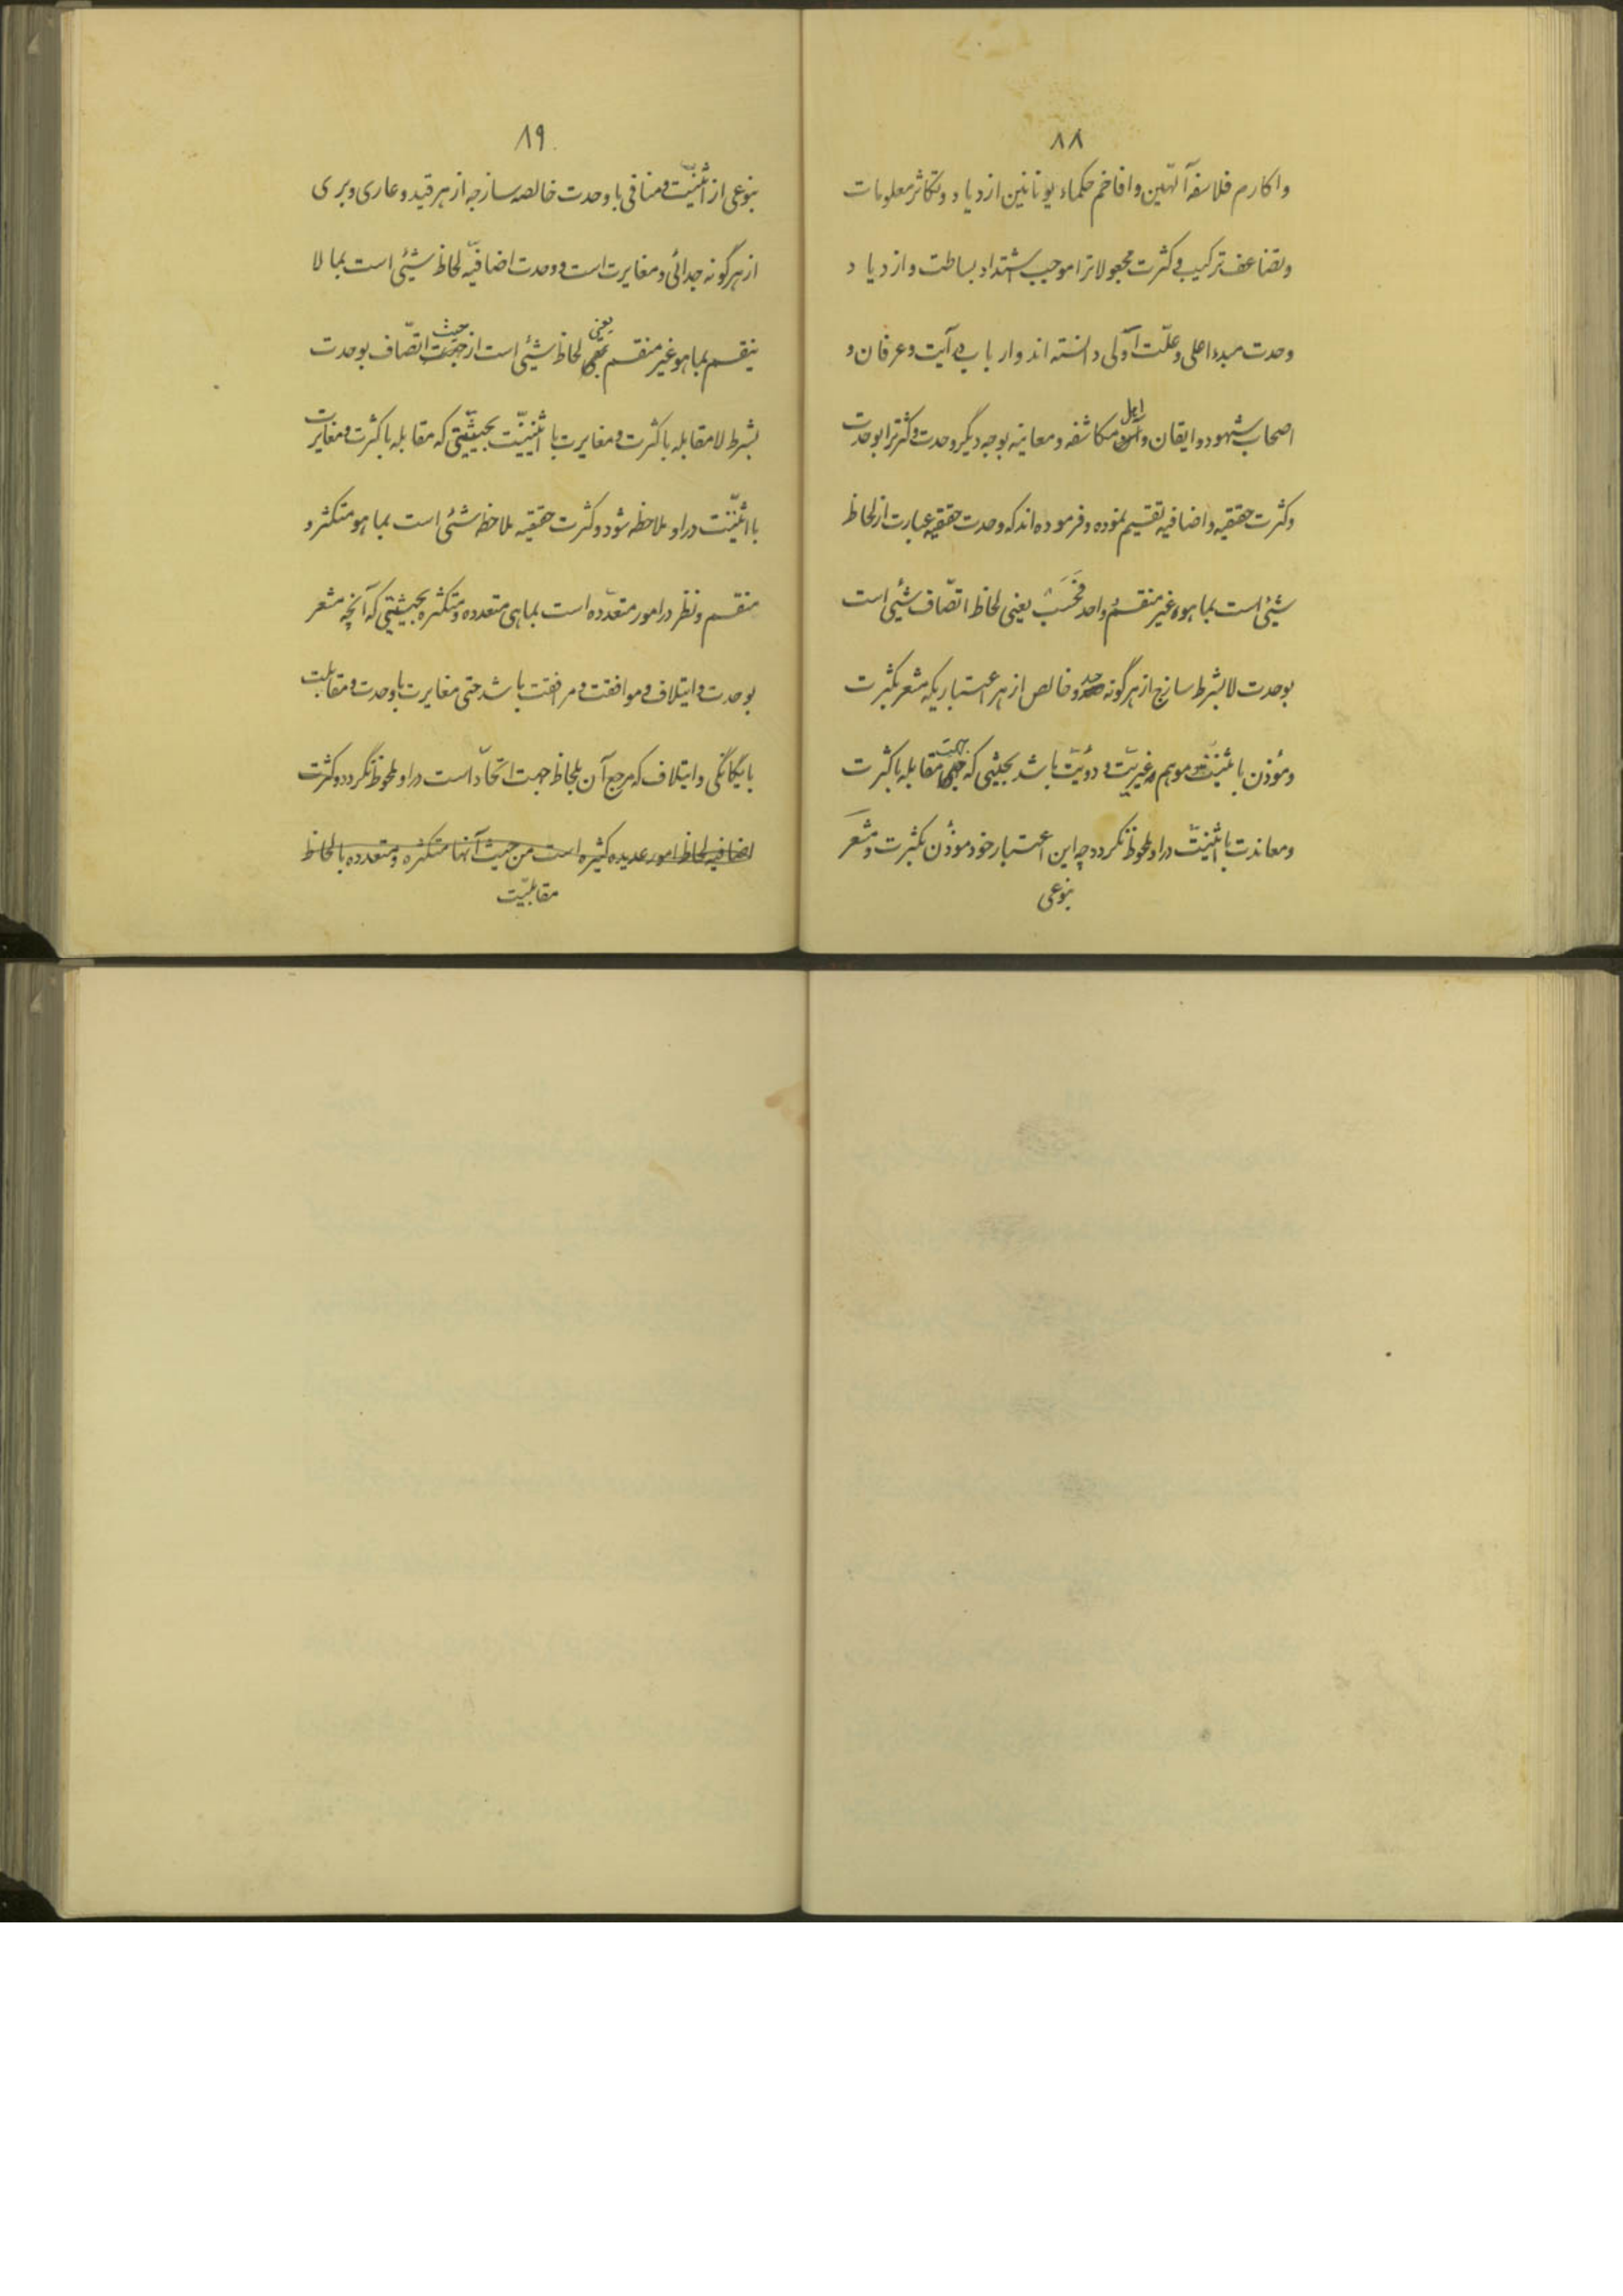 ۸۸
و اکارم فلاسفه آلهّین و افاخم حکماء یونانیین ازدیاد و تکاثر معلومات
و تضاعف ترکیب و کثرت مجعولاترا موجب اشتداد بساطت و ازدیاد
وحدت مبدء اعلی و علّت اولی دانسته اند و ارباب درآیت و عرفان و
اصحاب شهود و ایقان و اهل مکاشفه و معاینه بوجه دیگر وحدت و کثرترا بوحدت
و کثرت حقیقیه و اضافیه تقسیم نموده و فرموده اند که وحدت حقیقیه عبارت از لحاظ
شیئی است بما هو غیر منقسم و واحد فحسب یعنی لحاظ اتّصاف شیئی است
بوحدت لابشرط ساذج از هر گونه حد و خالص از هر اعتباریکه مشعر بکثرت
و مؤذن باثنینیّت و موهم غیریّت و دوئیّت باشد بحیثی که جهت مقابله با کثرت
و معاندت با اثنینیّت در او ملحوظ نگردد چه این اعتبار خود مؤذن بکثرت و مشعر
بنوعی
۸۹
بنوعی از اثنینیّت و منافی با وحدت خالصه ساذجه از هر قید و عاری و بری
از هر گونه جدائی و مغایرت است و وحدت اضافیّه لحاظ شیئی است بما لا
ینقسم بما هو غیر منقسم یعنی لحاظ شیئی است از حیث اتّصاف بوحدت
بشرط لا مقابله با کثرت و مغایرت با اثنینیّت بحیثیّتی که مقابله با کثرت و مغایرت
با اثنینیّت در او ملاحظه شود و کثرت حقیقیه ملاحظه شیئی است بما هو متکثر و
منقسم و نظر در امور متعدّده است بما هی متعدده و متکثره بحیثیتی که آنچه مشعر
بوحدت و ایتلاف و موافقت و مرافقت باشد حتی مغایرت با وحدت و مقابلت
با یگانگی و ایتلاف که مرجع آن بلحاظ جهت اتحّاد است در او ملحوظ نگردد و کثرت
اضافیه لحاظ امور عدیده کثیره است من حیث آنها متکثره و متعدده با لحاظ
مقابلیّت